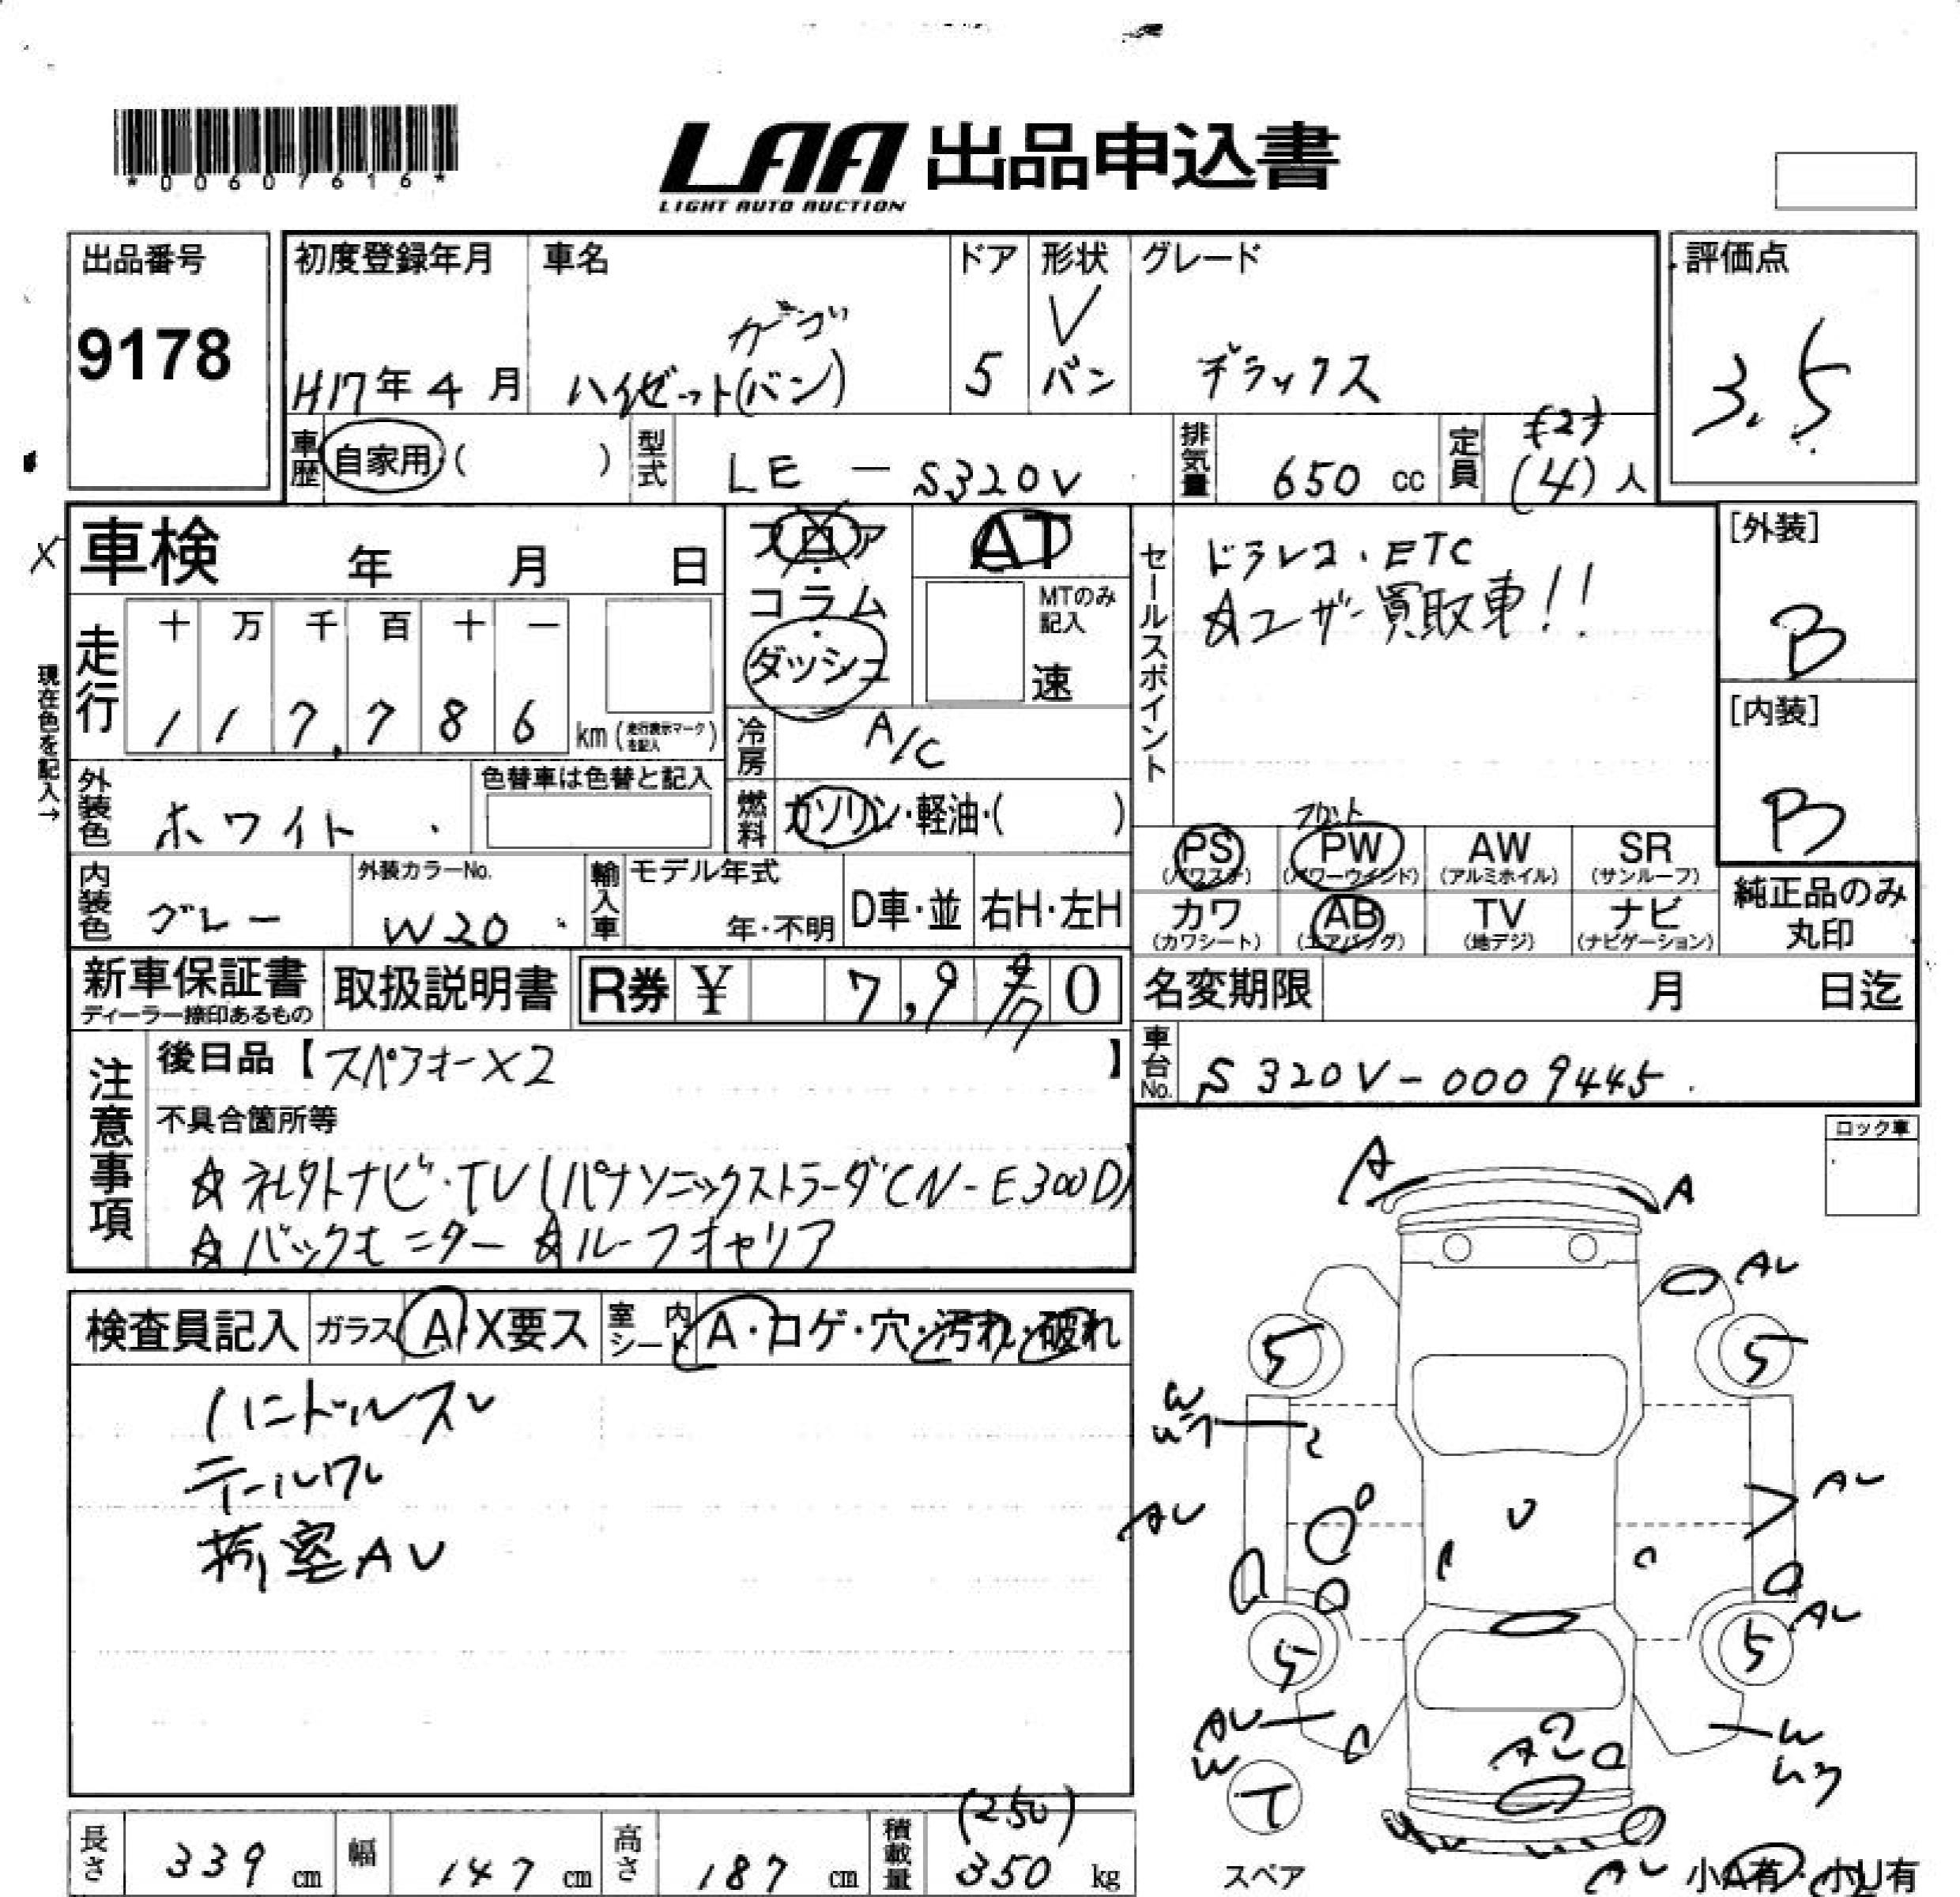 *00607616*
LAA 出品申込書
LIGHT AUTO AUCTION
出品番号
9178
初度登録年月
H17年 4 月
車名
カーゴ
ハイゼット(バン)
ドア
5
形状
V
バン
グレード
デラックス
評価点
3.5
車歴
自家用 ( )
型式
LE - S320V
排気量
650 cc
定員
(2)
(4) 人
車検 年 月 日
走行
十 万 千 百 十 一
1 1 7, 7 8 6 km (走行表示マークを記入)
現在色を記入→
フロア・コラム・ダッシュ
AT
MTのみ記入
速
冷房
A/C
燃料
ガソリン・軽油・( )
セールスポイント
ドラレコ・ETC
☆ユーザー買取車!!
[外装]
B
[内装]
B
外装色
ホワイト
色替車は色替と記入
内装色
グレー
外装カラーNo.
W20
輸入車
モデル年式
年・不明
D車・並
右H・左H
フロント
PS (パワステ)
PW (パワーウインド)
AW (アルミホイル)
SR (サンルーフ)
カワ (カワシート)
AB (エアバッグ)
TV (地デジ)
ナビ (ナビゲーション)
純正品のみ
丸印
新車保証書
ディーラー捺印あるもの
取扱説明書
R券 ¥ 7,9 7 0
名変期限 月 日迄
車台No.
S320V-0009445
注意事項
後日品【スペフォー×2 】
不具合箇所等
☆ネレクトナビ・TV(パナソニックストラーダCN-E300D)
☆バックモニター ☆ルーフキャリア
ロック車
検査員記入
ガラス A・X要ス
室内シート A・コゲ・穴・汚れ・破れ
ハンドルスレ
テールワレ
荷室AU
A
A
AU
5
5
W
2
AU
AU
U
5
5
AU
AU
W
W
A2
T
スペア
AU
小A有・小U有
長さ
339 cm
幅
147 cm
高さ
187 cm
積載量
(250)
350 kg